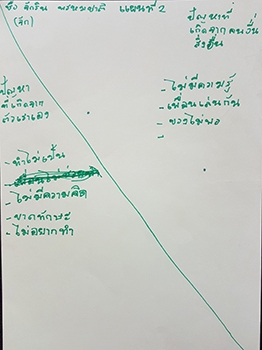 ชื่อ จักริน พรหมชาติ แผนที่ 2
(จัก)
ปัญหา
ที่เกิดจาก
ตัวเราเอง
- ทำไม่เป็น
- ไม่มีความคิด
- ขาดทักษะ
- ไม่อยากทำ
ปัญหาที่
เกิดจากคนอื่น
สิ่งอื่น
- ไม่มีความรู้
- เพื่อนเล่นกัน
- ของไม่พอ
-